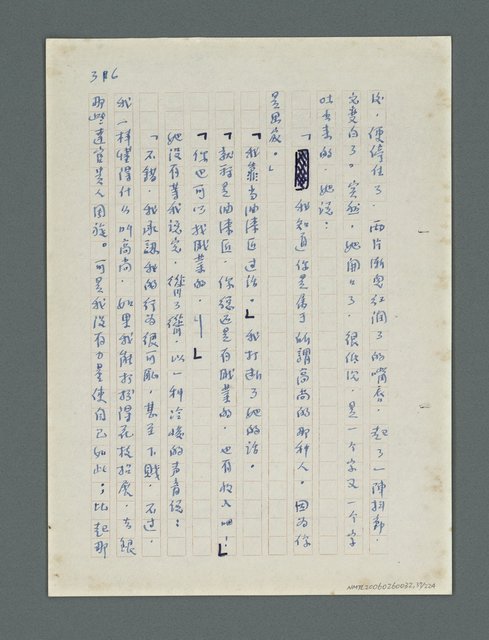 316
後，便停住了，兩片漸電紅潤了的嘴唇，起了一陣抖動，
完蛋白了。突然，她開口了，很低沉，是一个字又一个字
吐出來的，她說：
「我知道你是屬于所謂高尚的那种人。因為你
是男爵。」
「我靠当油漆匠过活。」我打断了她的話。
「就算是油漆匠，你總还是有職業的，也有收入吔！」
「你也可以找職業的，」
她沒有等我說完，聳了聳肩，以一种冷峻的声音說：
「不錯，我承認我的行為很可恥，甚至下賤，不过，
我一樣懂得什么叫高尚，如果我能打扮得花枝招展，去跟
那些達官貴人周旋。可是我沒有力量使自己如此；比起那
NMTL20060260032,317/324